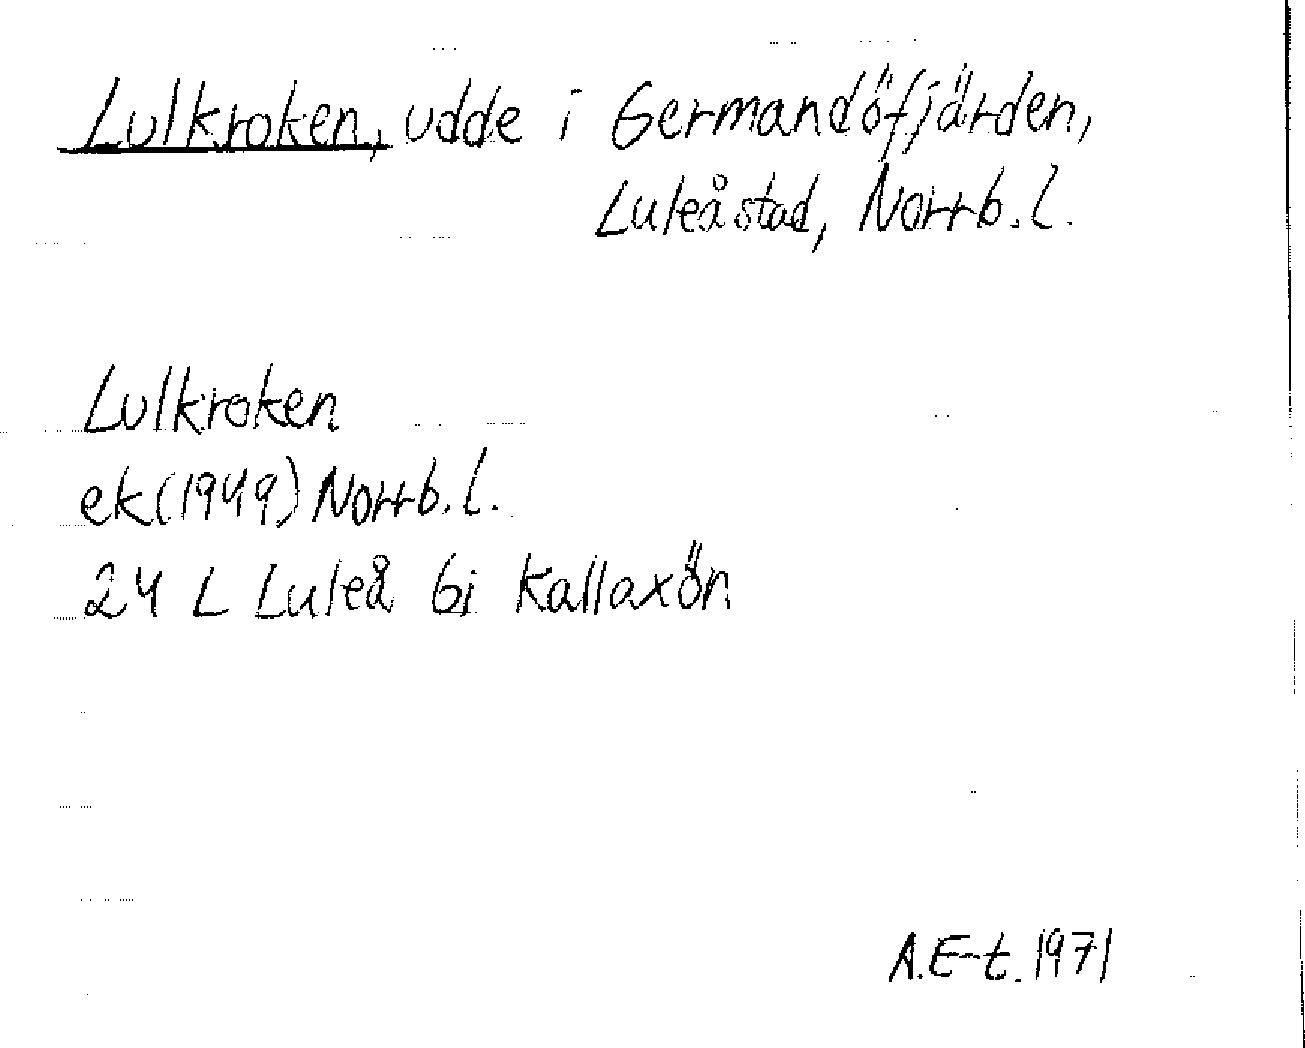 Lulkroken, udde i Germandöfjärden,
Luleå stad, Norrb. l.
Lulkroken
ek (1949) Norrb. l.
24 L Luleå 6i Kallaxön
A. E-t. 1971